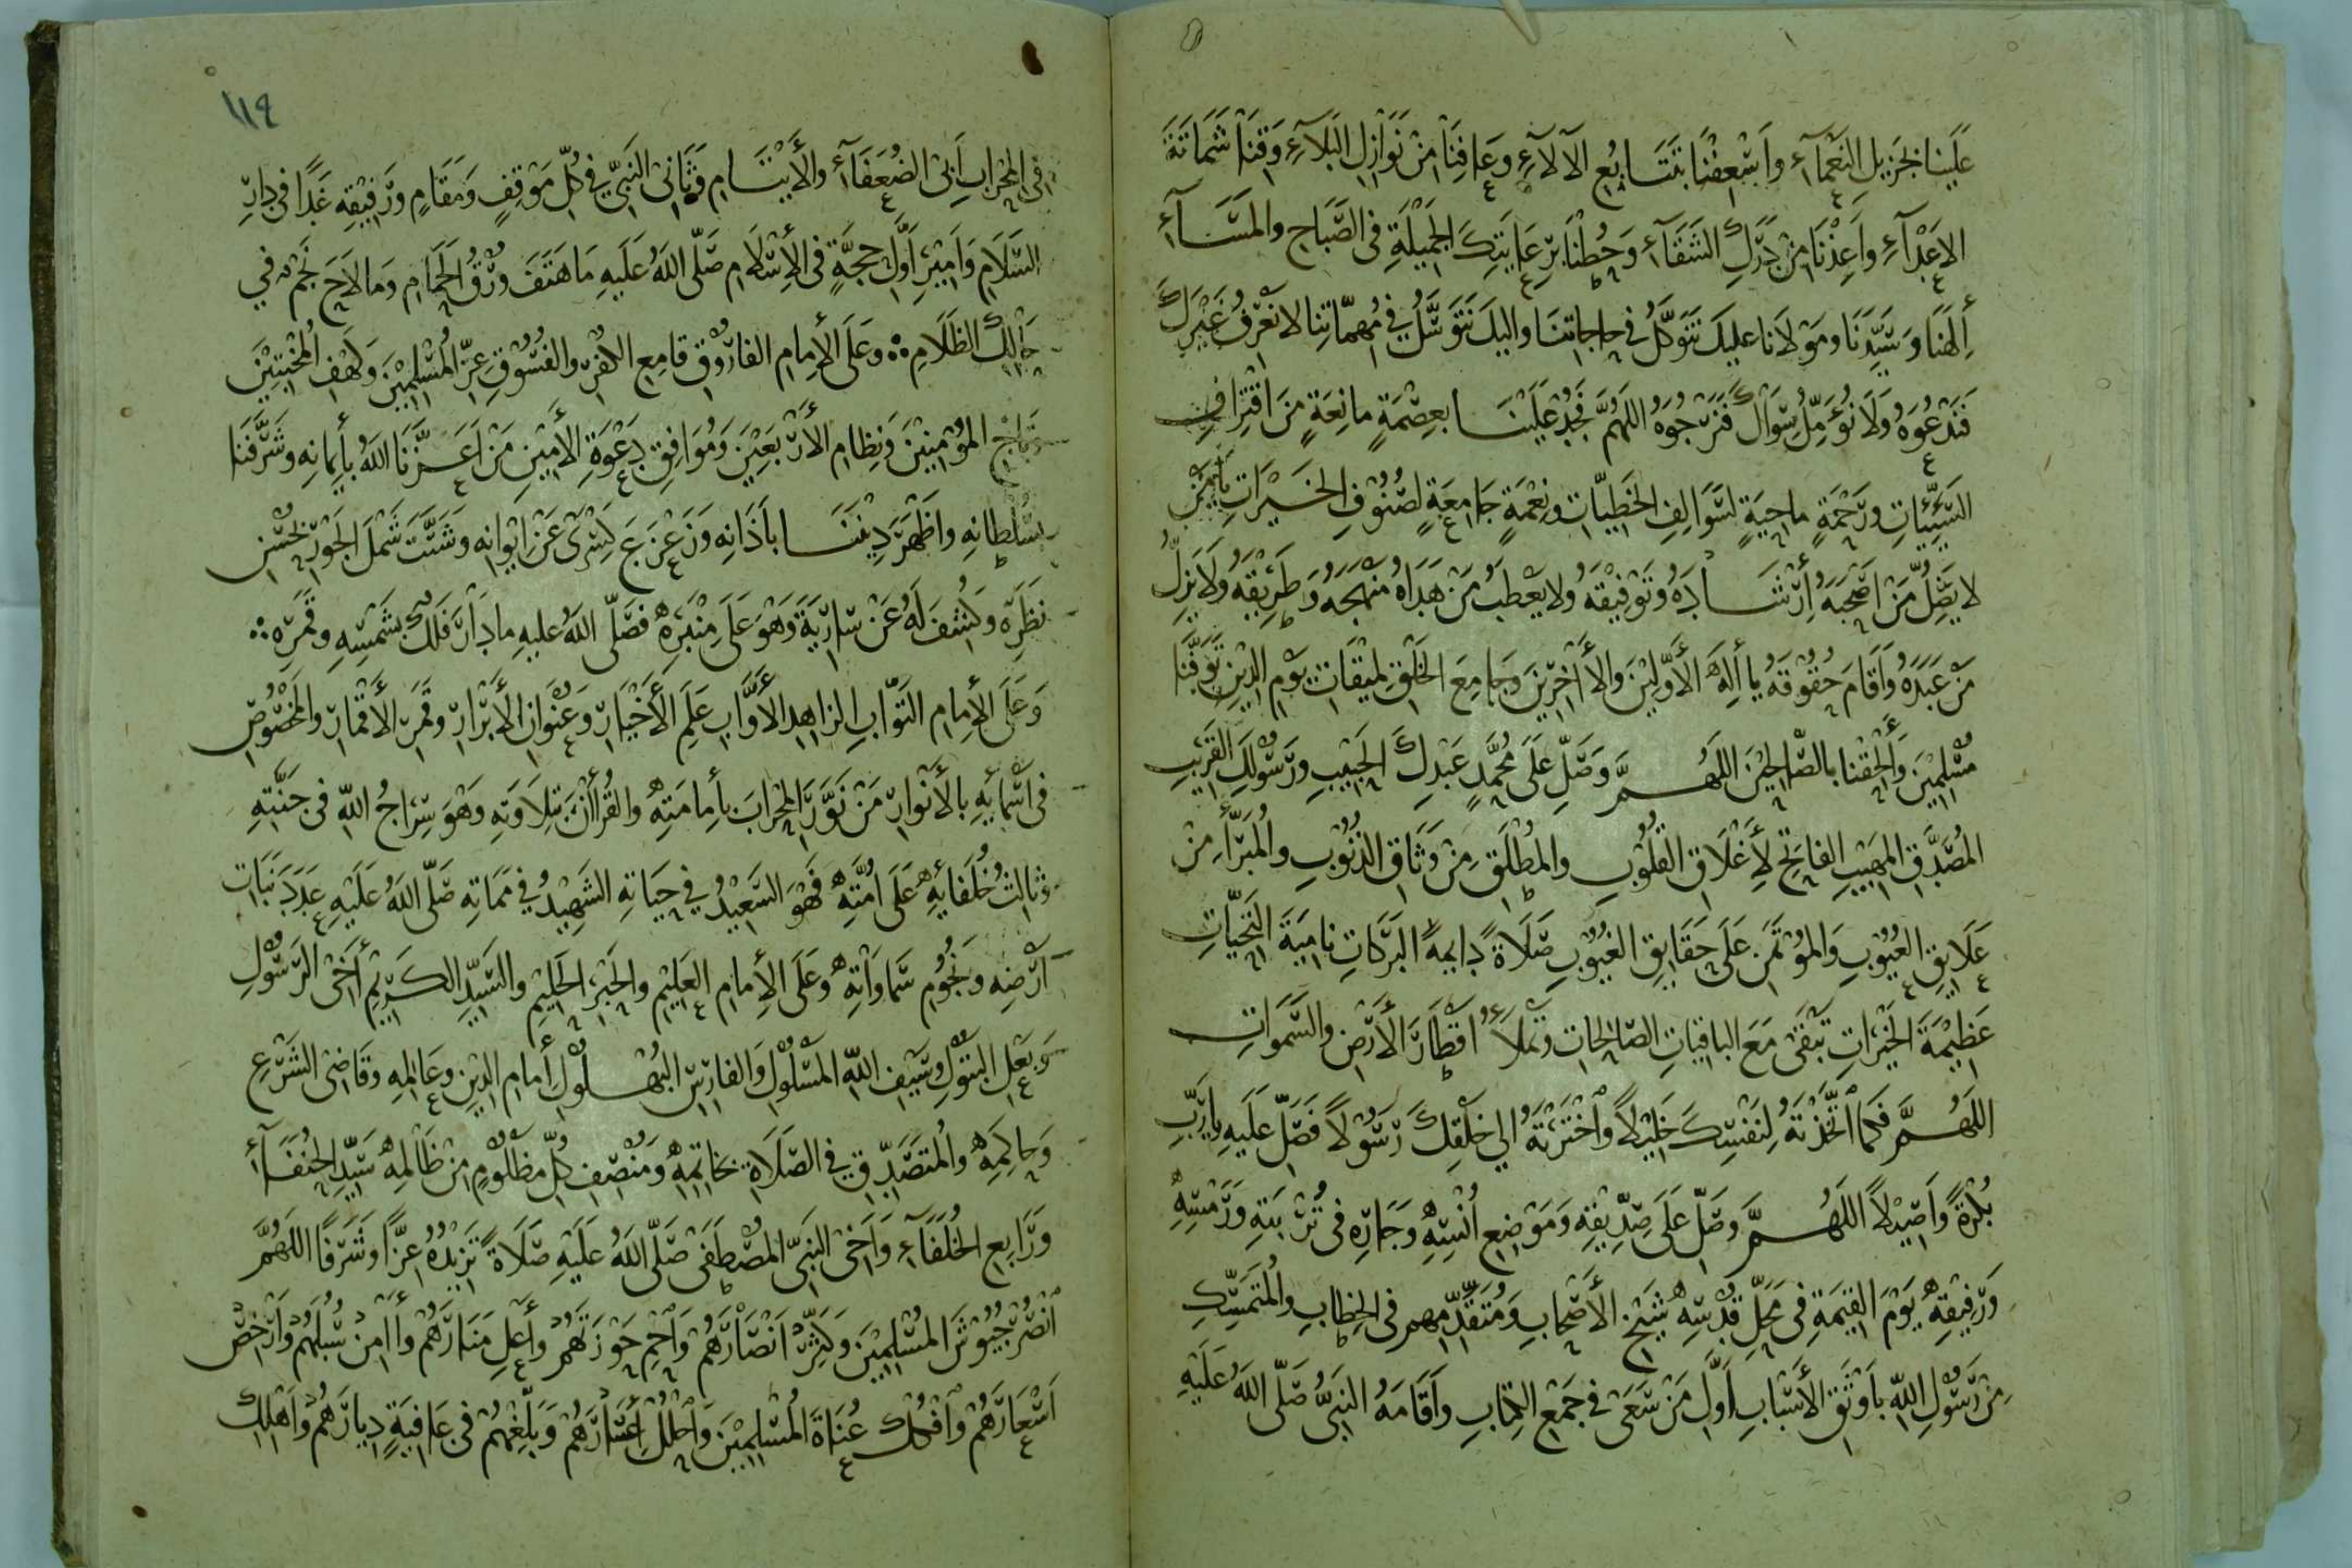 عَلَيْنا بجَزيلِ النَّعْمآءِ واَسْعِفْنا بتَتَابُعِ الآلآءِ وعَافِنَا مِنْ نَوَازِلِ البَلَآءِ وَقِنَا شَمَاتَةَ
الاَعْدَآءِ واَعِذْنَا مِنْ دَرَكِ الشَقَآءِ وَحُطْنَا برِعَايَتِكَ الجَمِيْلَةِ فى الصَّبَاحِ والمَسَآءِ
أِلٰهَنَا وَسَيِّدَنَا ومَوْلَانا عليكَ نَتَوَكَّلُ في حاجاتنَا واليكَ نَتَوَسَّلُ في مُهِمّاتِنا لا نعْرفُ غَيْرَكَ
فَنَدْعُوَهُ وَلَا نُؤَمِّلُ سِوَاكَ فَنَرْجُوَهُ اللهُمَّ فجُدْ عَلَيْنَا بعِصْمَةٍ مانِعَةٍ مِنَ اقْتِرَافِ
السَيِّئاتِ ورَحْمَةٍ ماحِيَةٍ لسَوَالِفِ الخَطِيّاتِ ونِعْمَةٍ جَامِعَةٍ لصُنُوْفِ الخَيْرَاتِ يأمَنْ
لا يَضِلُّ مَنْ اَصْحَبَهُ أِرْشَادَهُ وَتَوْفِيْقَهُ ولا يعْطَبُ مَنْ هَدَاهُ مَنْهَجَهُ وَطَرِيْقَهُ وَلَا يَزِلُّ
مَنْ عَبَدَهُ وَاَقَامَ حُقُوْقَهُ يا أِلٰهَ الأوَّلِيْنَ والأاخِرِيْنَ وَجَامِعَ الخَلْقِ لِميْقَاتِ يَوْمِ الدِّيْنِ تَوَفَّنَا
مُسْلِمِيْنَ وَأَلْحِقْنا بالصَّالِحِيْنَ اللهُمَّ وَصَلِّ عَلَى مُحَمَّدٍ عَبْدِكَ الحَبِيْبِ ورَسُوْلِكَ القَرِيْبِ
المُصَدَّقِ المَهِيْبِ الفاتِحِ لِأغْلَاقِ القُلُوْبِ والمُطْلَقِ مِنْ وَثَاقِ الذُنُوْبِ والمُبَرَّأِ مِنْ
عَلَايقِ العُيُوْبِ وَالمُؤتَمَنِ عَلَى حَقَايِقِ الغيُوْبِ صَلَاةً دايمةَ البَرَكاتِ نامِيَةَ التَحيّاتِ
عَظِيْمَةَ الخَيْرَاتِ تَبْقَى مَعَ الباقياتِ الصّالحاتِ وتَملأُ اَقْطَارَ الأرْضِ والسَّموَاتِ
اللهُمَّ فَكما اتَّخَذْتَهُ لِنَفْسِكَ خَلِيْلاً وَاخْتَرْتَهُ الي خلْقِكَ رَسُوْلاً فَصَلِّ عَلَيهِ يارَبِّ
بُكْرَةً واَصِيْلاً اللَهُمَّ وصَلّ عَلَى صِدِّيقِهِ وَمَوْضِعِ اُنْسِهِ وَجَارِهِ فى تُرْبَتِهِ وَرَمْسِهِ
وَرَفِيْقِهِ يَوْمَ القِيٰمَةِ فى مَحَلِّ قُدْسِهِ شَيْخِ الأَصْحابِ وَمُتَقَدِّمِهِم فى الخِطابِ والمُتَمَسِّكِ
مِنْ رَسُوْلِ اللهِ بأوْثَقِ الأسْبَابِ اَوَّلِ مَنْ سَعَى في جَمْعِ الكِتابِ وأَقَامَهُ النَبىُّ صَلّى اللهُ عَلَيْهِ
١١٩
فى المِحْرَابِ اَبى الضُعَفَآءِ والأيْتَامِ وَثَانِى النَبىِّ في كُلِّ مَوْقِفٍ وَمَقَامٍ ورَفيْقِهِ غَدًا فى دَارِ
السَّلَامِ وَاَمِيْرِ اَوَّلِ حجَّةٍ فى الأِسْلَامِ صَلَّى اللهُ عَلَيهِ مَا هَتَفَ وُرْقُ الحَمَامِ وَما لَاحَ نَجْمٌ في
حَالِكِ الظَلَامِ وعَلَى الأِمامِ الفارُوْقِ قامِعِ الكُفْرِ والفُسُوْقِ عِزِّ المُسْلِمِيْنَ وَكَهْفِ المُخْبِتِيْنَ
وَتَاجِ المُؤْمِنِيْنَ وَنِظامِ الأَرْبَعِيْنَ وَمُوَافِقِ دَعْوَةِ الأمِيْنِ مَنْ اَعَزَّنَا اللهُ بأِيمانِهِ وشَرَّفَنَا
بسُلْطانِهِ واَظْهَرَ دِيْنَنَا بأذَانِهِ وَزَعْزَعَ كِسْرَى عَنْ اِيْوَانِهِ وَشَتَّتَ شَمْلَ الجَوْرِ بحُسْنِ
نظَرِهِ وَكُشِفَ لَهُ عَنْ سَارِيَةَ وَهْوَ عَلَى مِنْبَرِهِ فصَلَّى اللهُ عليهِ ما دَارَ فَلَكٌ بشَمْسِهِ وقَمَرِهِ
وَعَلَى الأِمامِ التَوّابِ الزاهدِ الأَوَّابِ عَلَمِ الأَخْيَارِ وَعُنْوَانِ الأَبْرَارِ وقَمَرِ الأَقْمَارِ والمَخْصُوْصِ
فى اَسْمائِهِ بالأنْوَارِ مَنْ نَوَّرَ المِحْرَابَ بأِمامَتِهِ والقُرْاٰنَ بتِلَاوَتِهِ وَهْوَ سِرَاجُ اللهِ فى جَنَّتِهِ
وثَالثُ خُلَفائِهِ عَلَى اُمَّتِهِ فَهْوَ السَّعِيْدُ في حيَاتِهِ الشَهِيْدُ في مَمَاتِهِ صَلَّى اللهُ عَلَيْهِ عَدَدَ نَبَاتِ
اَرْضِهِ ونُجُوْمِ سَمَاوَاتِهِ وَعَلَى الأِمامِ العَلِيْمِ والحَبْرِ الحَلِيْمِ والسَيِّدِ الكَرِيْمِ أَخِى الرَسُوْلِ
وَبَعْلِ البَتُوْلِ وسَيْفِ اللهِ المَسْلُوْلِ وَالفارِسِ البُهْلُوْلِ أِمامِ الدِّيْنِ وعَالِمِهِ وقَاضِى الشَرْعِ
وَحاكِمِهِ والمُتَصَدِّقِ في الصَّلَاةِ بخاتَمِهِ وَمُنْصِفِ كُلِّ مظْلُوْمٍ مِنْ ظَالِمِهِ سَيِّدِ الحُنَفَآءِ
وَرَابِعِ الخُلَفَآءِ وَاَخى النَبىِّ المُصْطَفَى صَلَّى اللهُ عَلَيْهِ صَلَاةً تَزِيْدُهُ عِزًّا وشَرَفًا اللهُمَّ
انْصُرْ جُيُوْشَ المُسْلِمِيْنَ وَكَثِّرْ اَنْصَارَهُمْ وَاحْمِ حَوْزَتَهُمْ وأَعْلِ مَنَارَهُمْ وأامِنْ سُبُلَهُمْ وَاَرْخِصْ
اَسْعَارَهُمْ وَافْكُكْ عُنَاةَ المُسْلِمِيْنَ وَاحْلُلْ أِسَارَهُمْ وَبَلِّغْهُمْ فى عَافِيَةٍ دِيارَهُمْ وَاَهْلِكْ